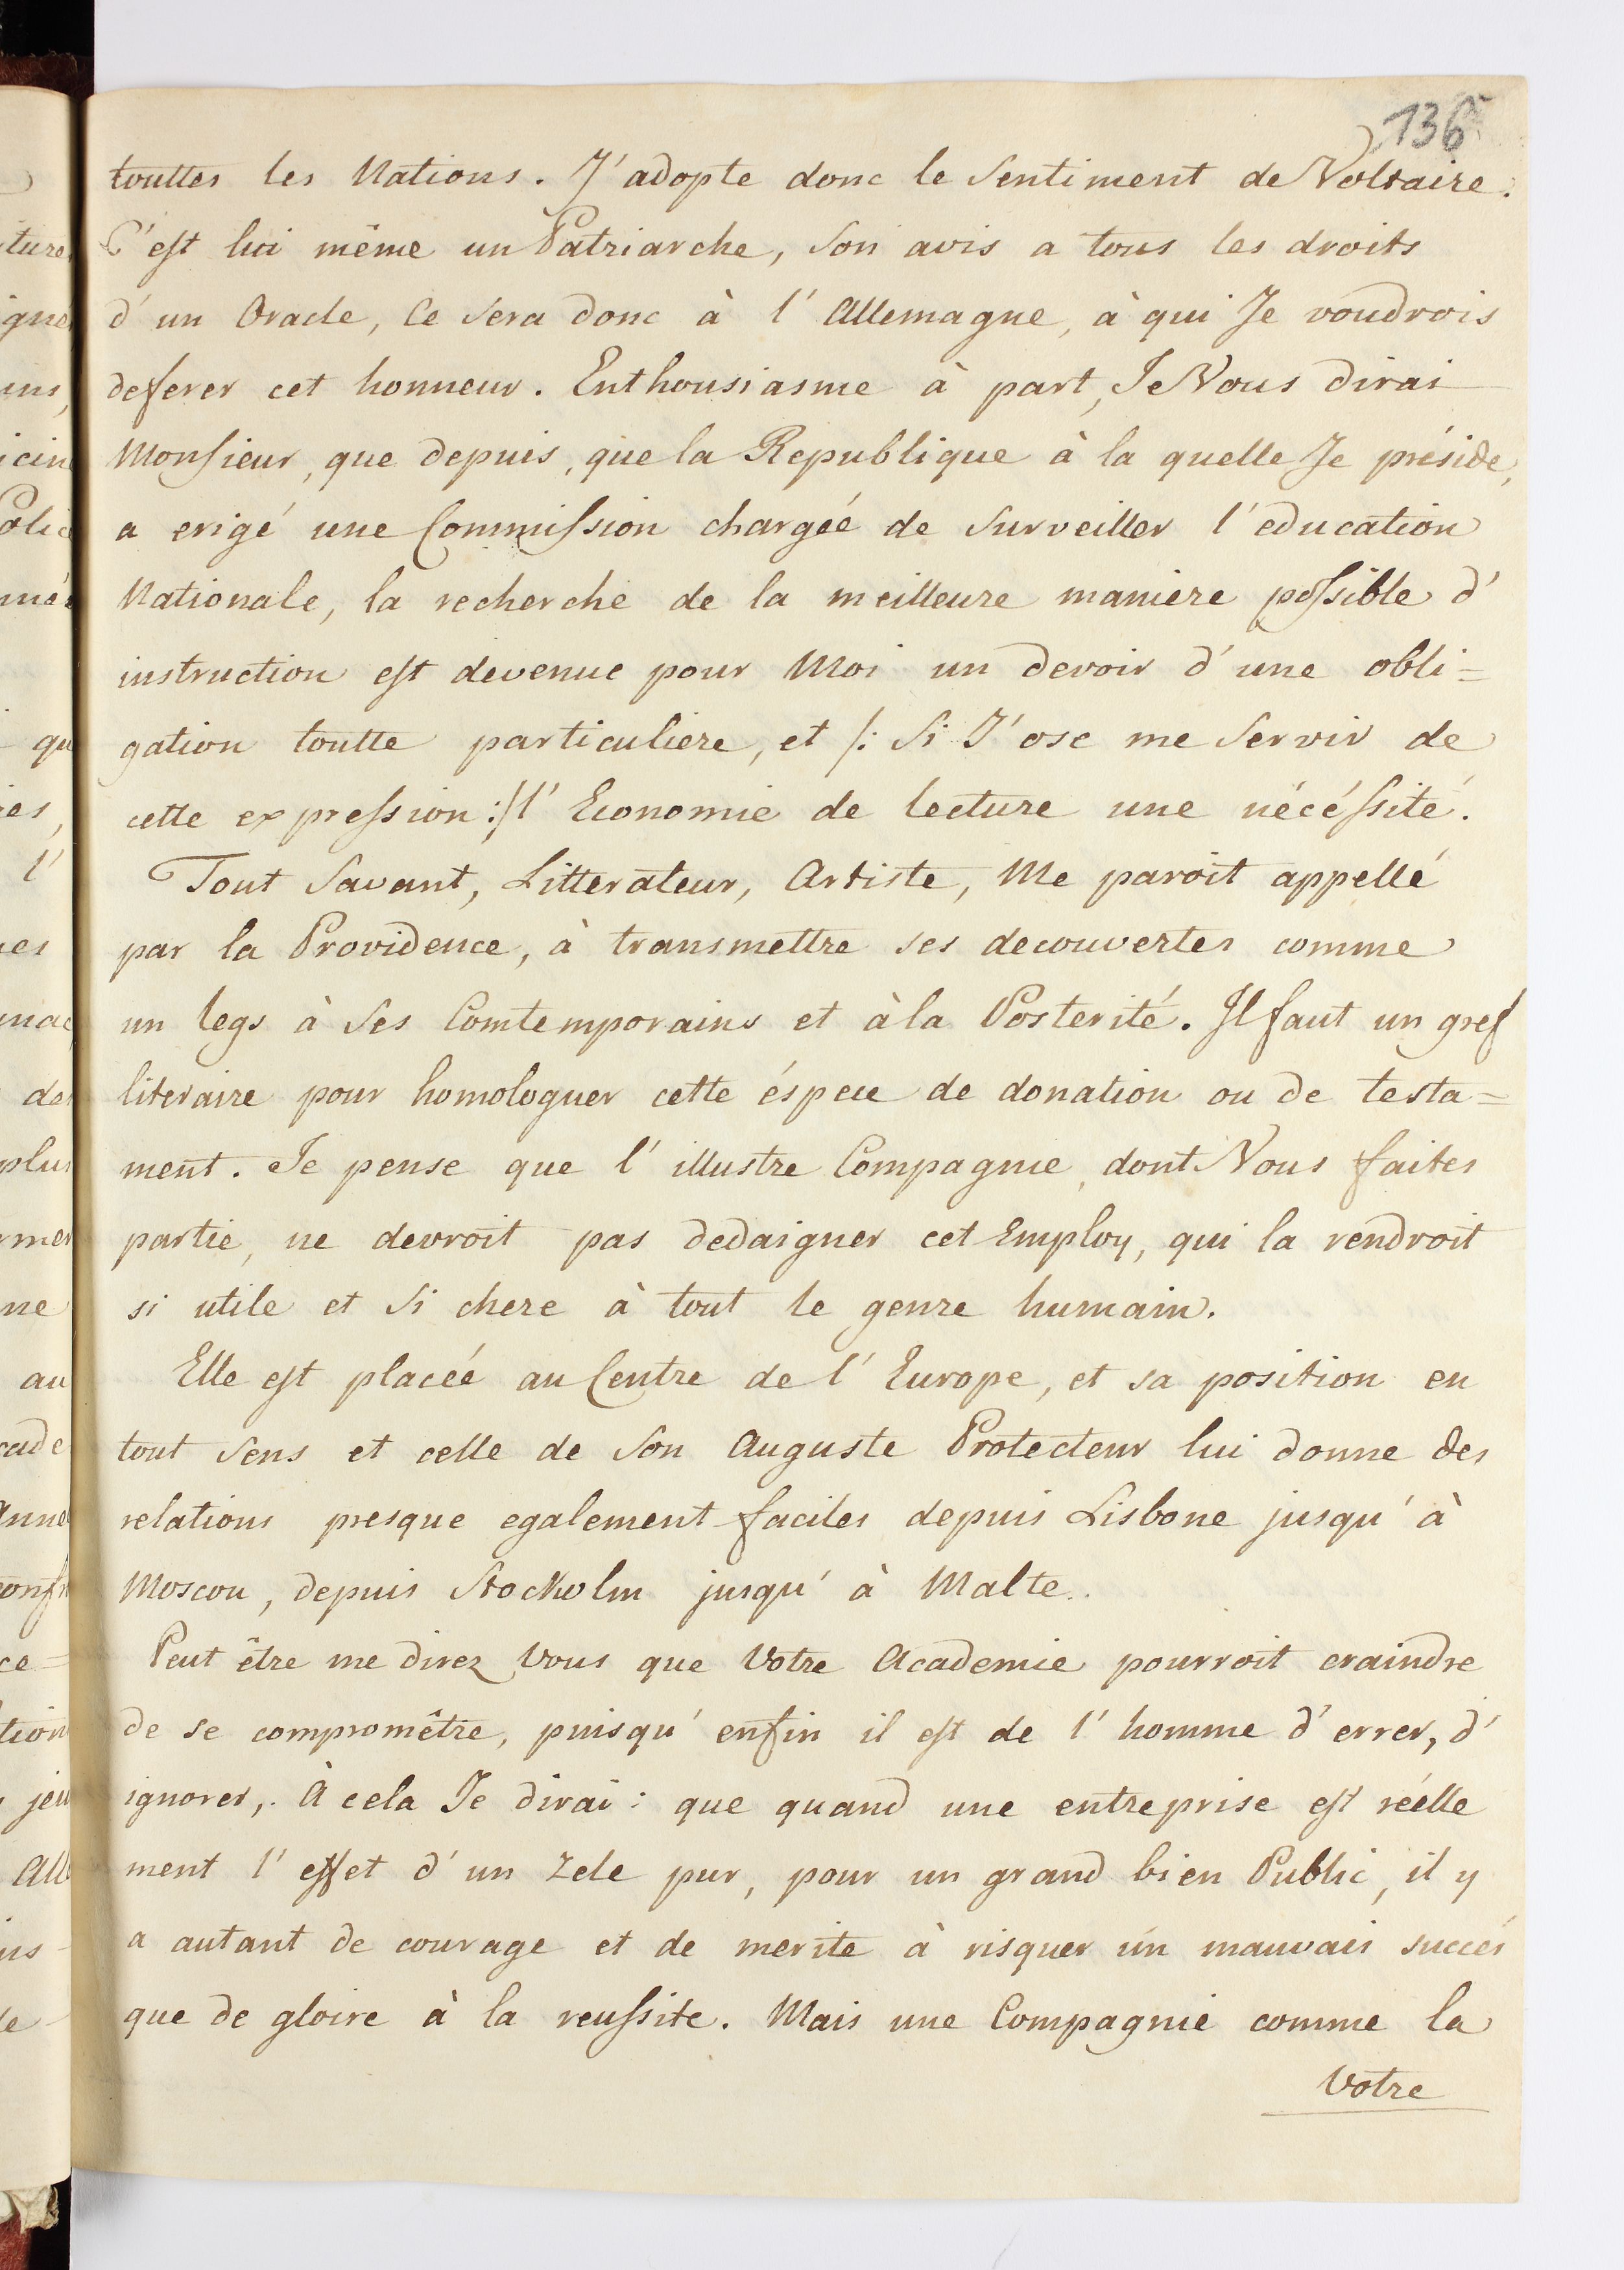 136
touttes les Nations. J'adopte donc le Sentiment de Voltaire.
C'est lui même un Patriarche, Son avis a tous les droits
d'un Oracle, Ce Sera donc à l'Allemagne, à qui Je voudrois
deferer cet honneur. Enthousiasme à part, Je Vous dirai
Monsieur, que depuis, que la Republique à la quelle Je préside,
a erigé une Commission chargéé de Surveiller l'education
Nationale, la recherche de la meilleure maniere possible d'
instruction est devenue pour Moi un devoir d'une obli=
gation toutte particuliere, et /: Si J'ose me Servir de
cette expression :/ l'Economie de lecture une nécéssité.
Tout Savant, Litterateur, Artiste, Me paroit appellé
par la Providence, à transmettre ses decouvertes comme
un legs à Ses Comtemporains et à la Posterité. Il faut un gref
literaire pour homologuer cette éspece de donation ou de testa=
ment. Je pense que l'illustre Compagnie, dont Vous faites
partie, ne devroit pas dedaigner cet Employ, qui la rendroit
si utile et Si chere à tout le genre humain.
Elle est placéé au Centre de l'Europe, et sa position en
tout Sens et celle de Son Auguste Protecteur lui donne des
relations presque egalement faciles depuis Lisbone jusqu'à
Moscou, depuis Stockolm jusqu'à Malte.
Peut être me direz Vous que Votre Academie pourroit craindre
de se compromêtre, puisqu'enfin il est de l'homme d'errer, d'
ignorer,. À cela Je dirai: que quand une entreprise est réelle
ment l'effet d'un Zele pur, pour un grand bien Public, il y
a autant de courage et de merite à risquer un mauvais succés
que de gloire à la reussite. Mais une Compagnie comme la
Votre